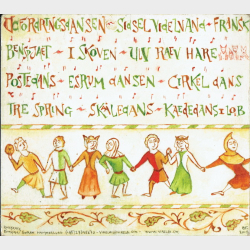 UDFORDRINGSDANSEN - SIDSEL VIDE NAND - FRANSK
BENSVÆT - I SKOVEN - ULV RÆV HARE
POSTEDANS - ESRUM DANSEN - CIRKEL DANS
TRE SPRING - SKÅLEDANS - KÆDEDANS I LØB